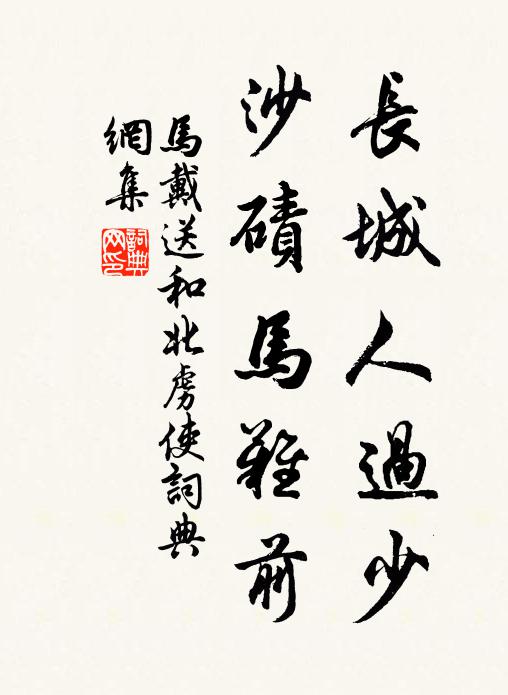 長城人過少
沙磧馬難前
馬戴送和北虜使詞典
網集
詞典網印